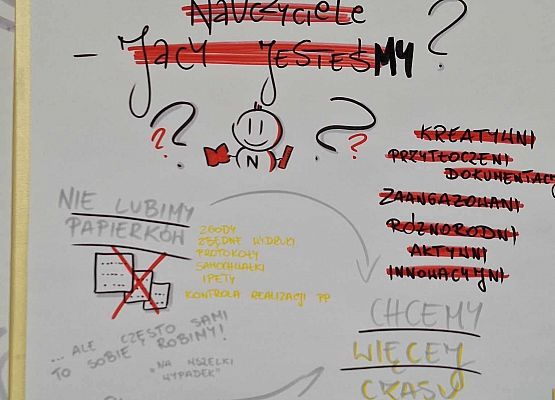 NAUCZYCIELE
– JACY JESTEŚMY ?
? ? ? ?
N
KREATYWNI
PRZYTŁOCZENI
DOKUMENTACJ
ZAANGAŻOWANI
RÓŻNORODNI
AKTYWNI
INNOWACYJNI
NIE LUBIMY
PAPIERKÓW
ZGODY
ZBĘDNE WYDRUKI
PROTOKOŁY
SAMOCHWAŁKI
IPETY
KONTROLA REALIZACJI PP
... ALE CZĘSTO SAMI
TO SOBIE ROBIMY!
"NA WSZELKI
WYPADEK"
CHCEMY
WIĘCEJ
CZASU